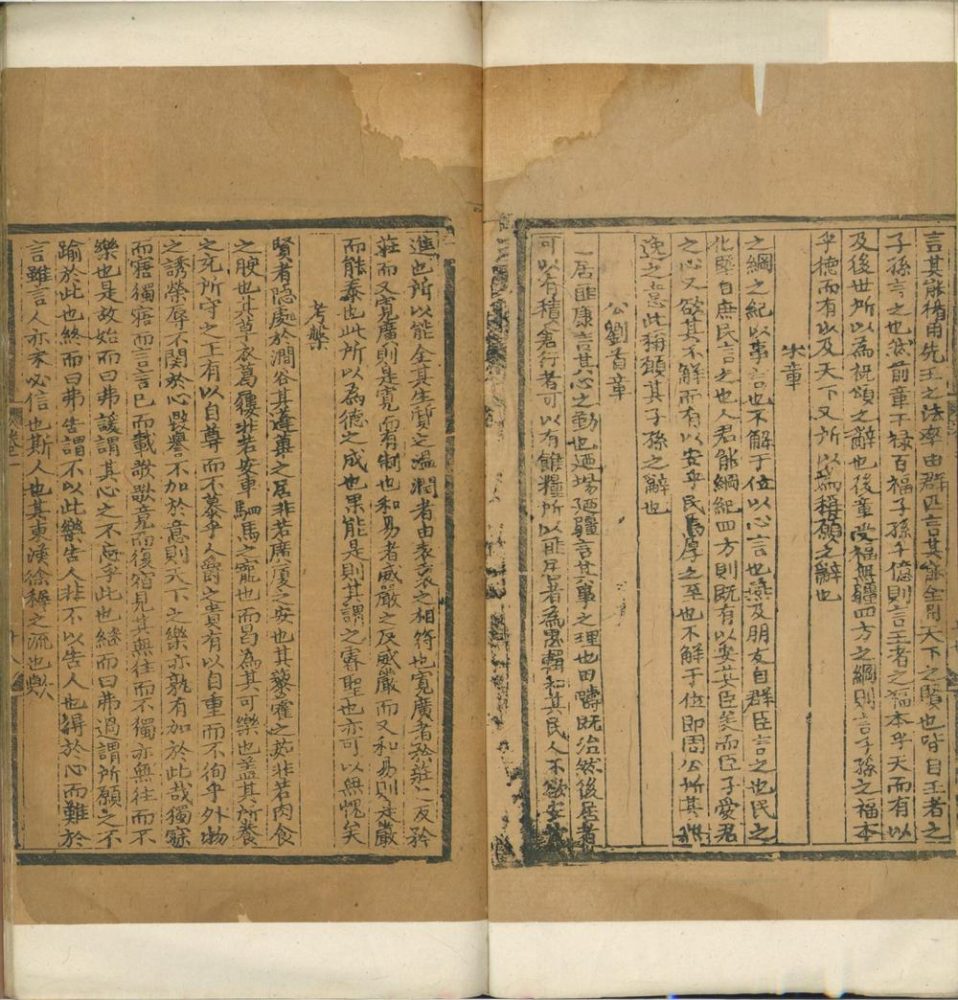 言其能循用先王之法率由群匹言其能全用天下之賢也皆自王者之
子孫言之也然前章干祿百福子孫千億則言王者之福本乎天而有以
及後世所以為祝頌之辭也後章受福無疆四方之綱則言子孫之福本
乎德而有以及天下又所以為稱願之辭也
末章
之綱之紀以事言也不解于位以心言也燕及朋友自群臣言之也民之
攸墍自庶民言之也人君能綱紀四方則既有以安其臣矣而臣子愛君
之心又欲其不解而有以安乎民焉厚之至也不解于位即周公所其無
逸之意此稱願其子孫之辭也
公劉首章
匪居匪康言其心之勤也迺場迺疆言其事之理也田疇既治然後居者
可以有積倉行者可以有餱糧所以
進也所以能全其生質之溫潤者由表裏之相符也寬廣者矜莊之反矜
莊而又寬廣則是寬而有制也和易者威嚴之反威嚴而又和易則是嚴
而能泰也此所以為德之成也果能是則其謂之睿聖也亦可以無愧矣
考槃
賢者隱處於澗谷其蓬蓽之居非若廣廈之安也其藜藿之茹非若肉食
之腴也其草衣葛屨非若安車駟馬之寵也而曷為其可樂也蓋其所養
之充所守之正有以自尊而不慕乎人爵之貴有以自重而不徇乎外物
之誘榮辱不関於心毀譽不加於意則天下之樂亦孰有加於此哉獨寐
而寤獨寤而言言已而載歌歌竟而復宿見其無往而不獨亦無往而不
樂也是故始而曰弗諼謂其心之不忘乎此也繼而曰弗過謂所願之不
踰於此也終而曰弗告謂不以此樂告人非不以告人也得於心而難於
言雖言人亦未必信也斯人也其東漢徐穉之流也歟